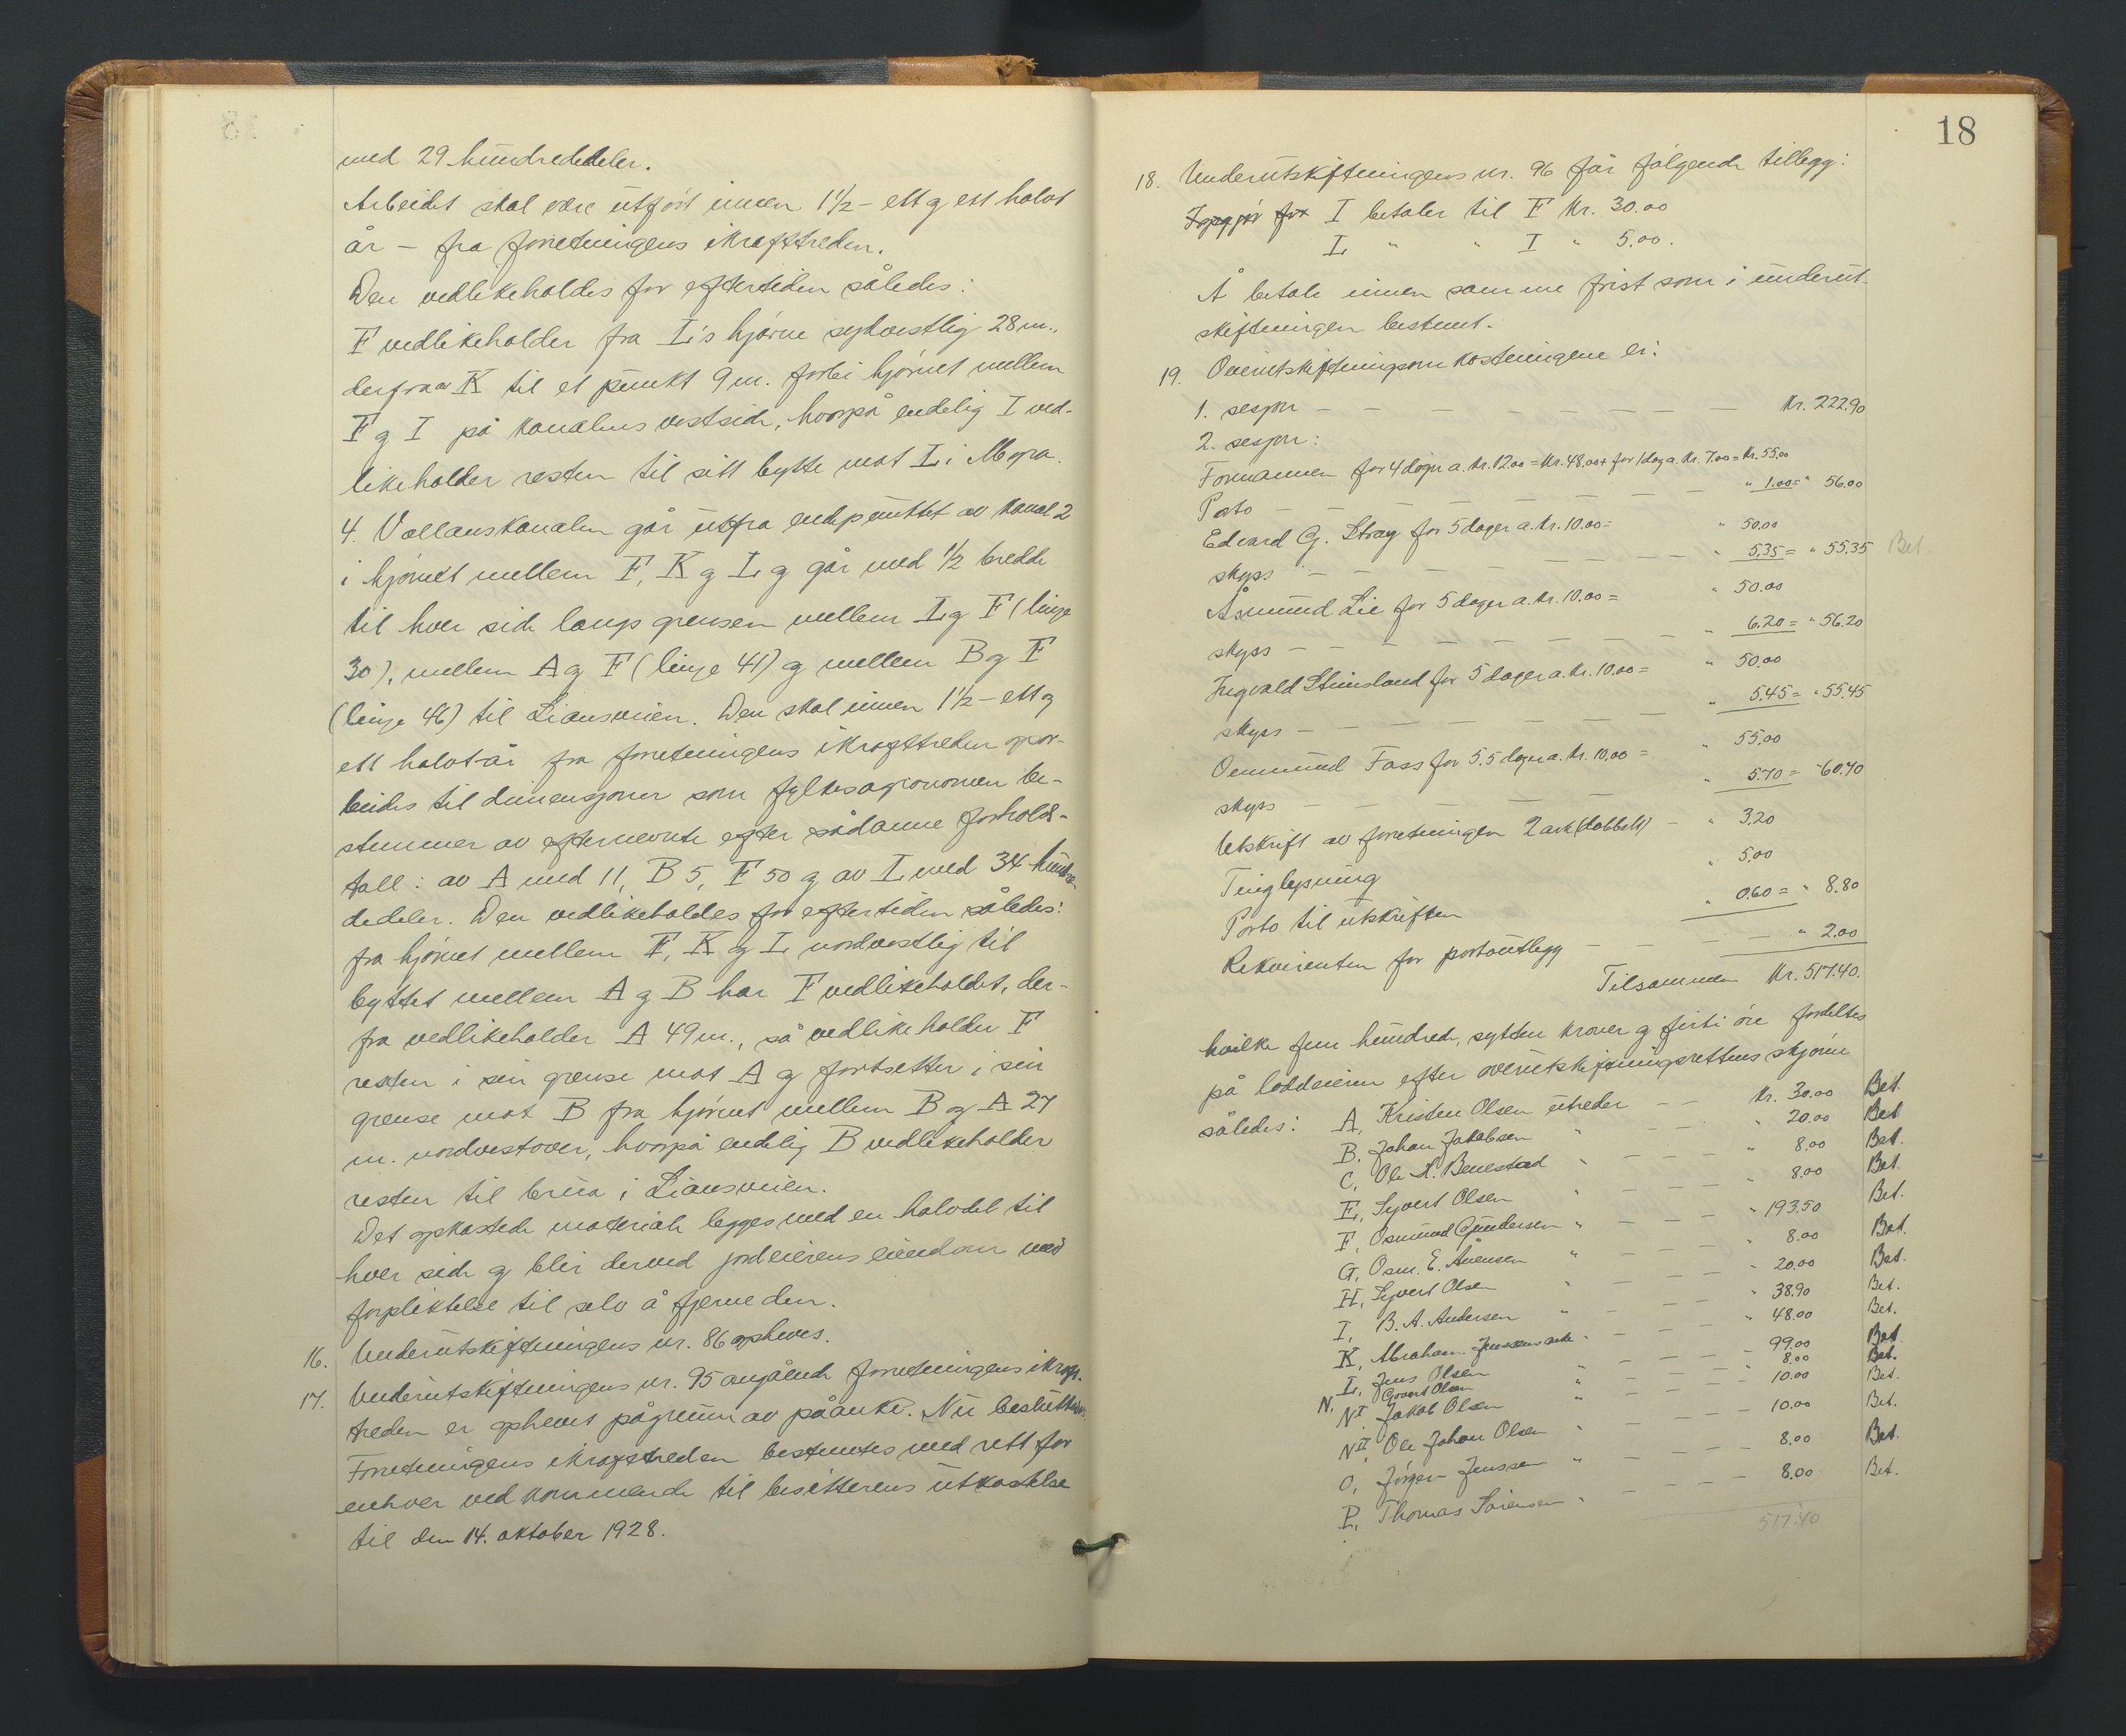 med 29 hundrededeler.
Arbeidet skal være utført innen 1½ – ett og ett halvt
år – fra forretningens ikrafttreden.
Den vedlikeholdes for eftertiden således:
F vedlikeholder fra L's hjørne sydvestlig 28 m.,
derfra av K til et punkt 9 m. forbi hjørnet mellem
F og I på kanalens vestside, hvorpå endelig I ved-
likeholder resten til sitt bytte mot L i Myra.
4. Vollanskanalen går ut fra endepunktet av kanal 2
i hjørnet mellem F, K og L og går med ½ bredde
til hver side langs grensen mellem L og F (linje
30), mellem A og F (linje 41) og mellem B og F
(linje 46) til Liansveien. Den skal innen 1½ – ett og
ett halvt år fra forretningens ikrafttreden opar-
beides til dimensjoner som fylkesagronomen be-
stemmer av efternevnte efter sådanne forholds-
tall: av A med 11, B 5, F 50 og av L med 34 hundre-
dedeler. Den vedlikeholdes for eftertiden således:
fra hjørnet mellem F, K og L nordvestlig til
byttet mellem A og B har F vedlikeholdet, der-
fra vedlikeholder A 49 m., så vedlikeholder F
resten i sin grense mot A og fortsetter i sin
grense mot B fra hjørnet mellem B og A 27
m. nordvestover, hvorpå endelig B vedlikeholder
resten til brua i Liansveien.
Det opkastede materiale legges med en halvdel til
hver side og blir derved jordeierens eiendom med
forpliktelse til selv å fjerne den.
16. Underutskiftningens nr. 86 opheves.
17. Underutskiftningens nr. 95 angående forretningens ikraft-
treden er ophevet på grunn av påanke. Nu besluttes:
Forretningens ikrafttreden bestemtes med rett for
enhver vedkommende til besitterens utkastelse
til den 14. oktober 1928.
18
18. Underutskiftningens nr. 96 får følgende tillegg:
I betaler til F Kr. 30.00
L " " I " 5.00.
Å betale innen samme frist som i underut-
skiftningen bestemt.
19. Overutskiftningsomkostningene er:
1. sesjon – – – – – – – – Kr. 222.90
2. sesjon:
Formannen for 4 dager a. Kr. 12.00 = Kr. 48.00 + for 1 dag a. Kr. 7.00 = Kr. 55.00
Porto – – – – – – – " 1.00 = " 56.00
Edvard G. Stray for 5 dager a. Kr. 10.00 = " 50.00
skyss – – – – – – – " 5.35 = " 55.35 Bet.
Åsmund Lie for 5 dager a. Kr. 10.00 = " 50.00
skyss – – – – – – – " 6.20 = " 56.20
Ingvald Stensland for 5 dager a. Kr. 10.00 = " 50.00
skyss – – – – – – – " 5.45 = " 55.45
Oemmund Foss for 5.5 dager a. Kr. 10.00 = " 55.00
skyss – – – – – – " 5.70 = " 60.70
Utskrift av forretningen 2 ark (dobbelt) – " 3.20
Tinglysning " 5.00
Porto til utskriften " 0.60 = " 8.80
Rekvirenten for portoutlegg – – – – " 2.00
Tilsammen Kr. 517.40.
hvilke fem hundrede, sytten kroner og førti øre fordeltes
på loddeierne efter overutskiftningsrettens skjønn
således: A, Kristen Olsen utreder – – Kr. 30.00 Bet.
B, Johan Jakobsen " – – " 20.00 Bet
C, Ole K. Benestad " – – – " 8.00 Bet.
E, Syvert Olsen " – – – " 8.00 Bet.
F, Osmund Gundersen " – – – " 193.50 Bet.
G, Osm. E. Ånensen " – – – " 8.00 Bet.
H, Syvert Olsen " – – – " 20.00 Bet.
I, B. A. Andersen " – – – " 38.90 Bet.
K, Abraham " – – – " 48.00 Bet.
L, Jens Olsen " – – – " 99.00 Bet.
N, Govert Olsen " – – – " 8.00 Bet.
N I, Jakob Olsen " – – – " 10.00 Bet.
N II, Ole Johan Olsen " – – – 10.00 Bet.
O, Jørgen Jenssen " – – – 8.00 Bet.
P, Thomas Sørensen " – – – 8.00 Bet.
517.40